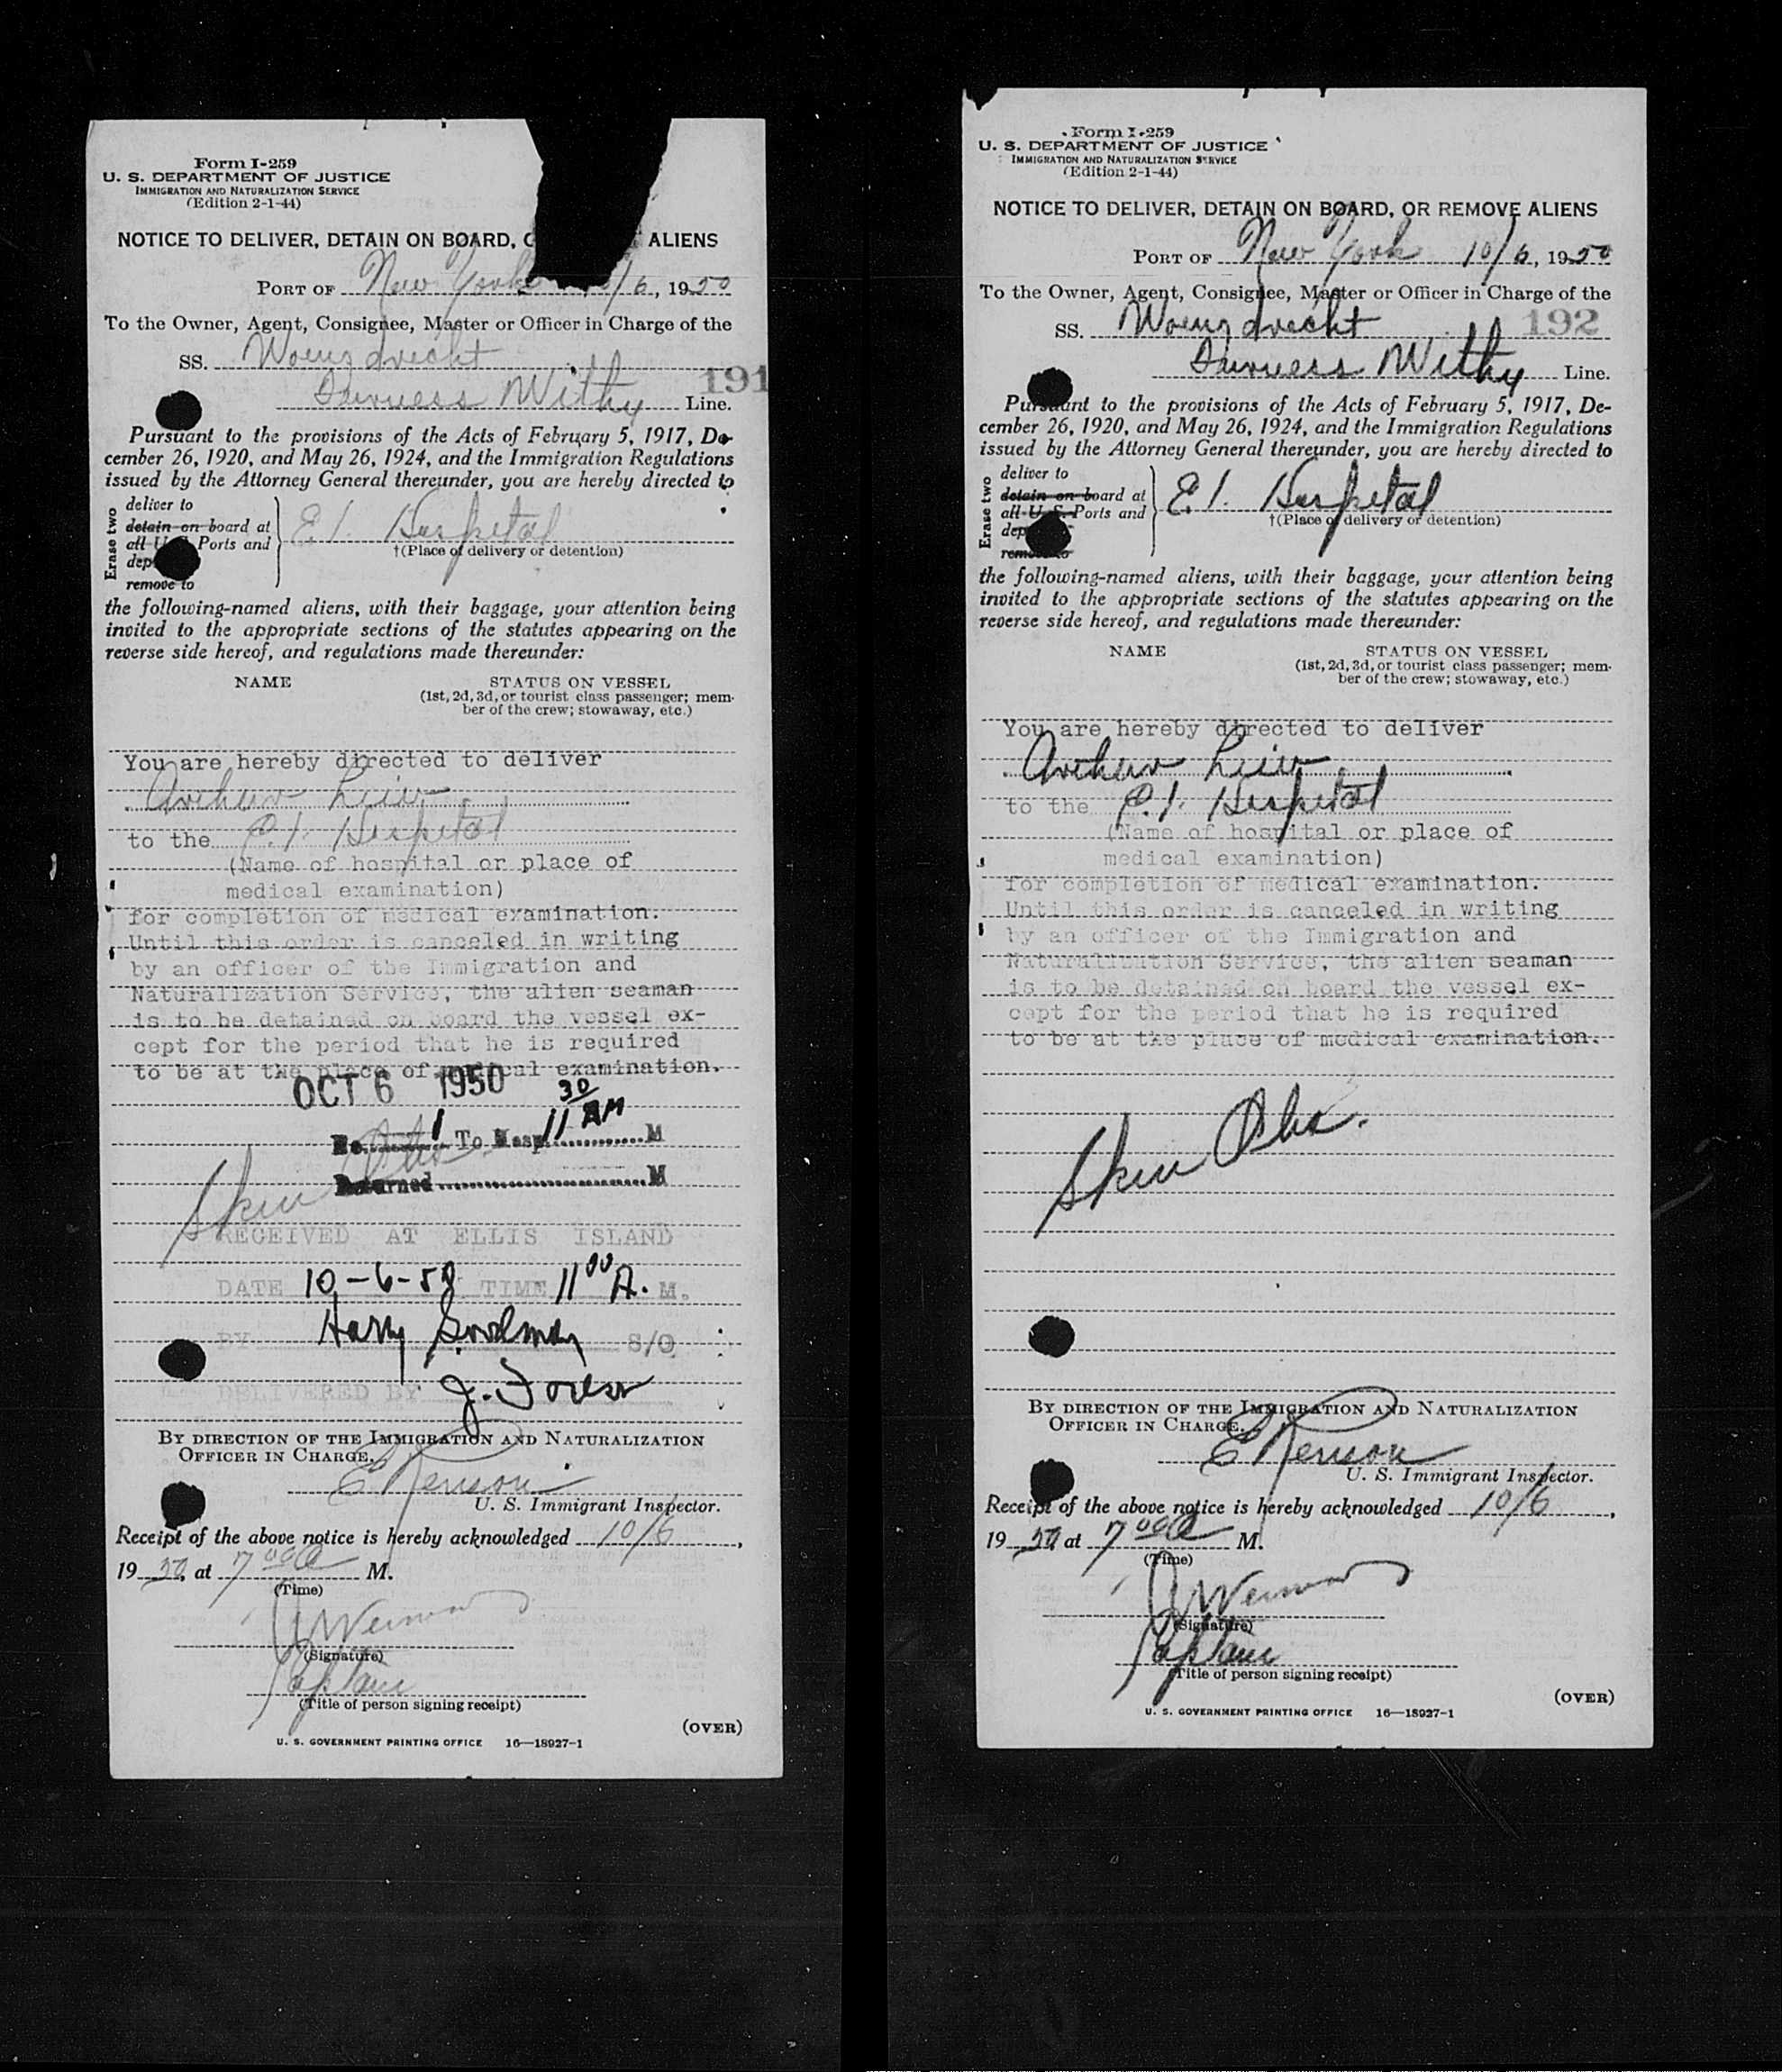 Form I-259
U. S. DEPARTMENT OF JUSTICE
IMMIGRATION AND NATURALIZATION SERVICE
(Edition 2-1-44)
NOTICE TO DELIVER, DETAIN ON BOARD, ALIENS
PORT OF New York /6, 1950
To the Owner, Agent, Consignee, Master or Officer in Charge of the
SS. Woensdrecht
191
Furness Withy Line.
Pursuant to the provisions of the Acts of February 5, 1917, De-
cember 26, 1920, and May 26, 1924, and the Immigration Regulations
issued by the Attorney General thereunder, you are hereby directed to
Erase two
deliver to
detain on board at
all U. S. Ports and
dep
remove to
E.I. Hospital
†(Place of delivery or detention)
the following-named aliens, with their baggage, your attention being
invited to the appropriate sections of the statutes appearing on the
reverse side hereof, and regulations made thereunder:
NAME STATUS ON VESSEL
(1st, 2d, 3d, or tourist class passenger; mem-
ber of the crew; stowaway, etc.)
You are hereby directed to deliver
to the E.I. Hospital
(Name of hospital or place of
medical examination)
for completion of medical examination.
Until this order is canceled in writing
by an officer of the Immigration and
Naturalization Service, the alien seaman
is to be detained on board the vessel ex-
cept for the period that he is required
to be at the place of medical examination.
OCT 6 1950
No. 1 To Hosp. 11 30 AM M
Returned M
Skin Obs.
RECEIVED AT ELLIS ISLAND
DATE 10-6-50 TIME 11 00 A. M.
BY Harry Goodman S/O
DELIVERED BY J.
BY DIRECTION OF THE IMMIGRATION AND NATURALIZATION
OFFICER IN CHARGE.
U. S. Immigrant Inspector.
Receipt of the above notice is hereby acknowledged 10/6,
1950, at 7 00 A M.
(Time)
(Signature)
Captain
(Title of person signing receipt)
(OVER)
U. S. GOVERNMENT PRINTING OFFICE 16—18927-1
Form I-259
U. S. DEPARTMENT OF JUSTICE
IMMIGRATION AND NATURALIZATION SERVICE
(Edition 2-1-44)
NOTICE TO DELIVER, DETAIN ON BOARD, OR REMOVE ALIENS
PORT OF New York 10/6, 1950
To the Owner, Agent, Consignee, Master or Officer in Charge of the
SS. Woensdrecht 192
Furness Withy Line.
Pursuant to the provisions of the Acts of February 5, 1917, De-
cember 26, 1920, and May 26, 1924, and the Immigration Regulations
issued by the Attorney General thereunder, you are hereby directed to
Erase two
deliver to
detain on board at
all U. S. Ports and
dep
remove to
E.I. Hospital
†(Place of delivery or detention)
the following-named aliens, with their baggage, your attention being
invited to the appropriate sections of the statutes appearing on the
reverse side hereof, and regulations made thereunder:
NAME STATUS ON VESSEL
(1st, 2d, 3d, or tourist class passenger; mem-
ber of the crew; stowaway, etc.)
You are hereby directed to deliver
to the E.I. Hospital
(Name of hospital or place of
medical examination)
for completion of medical examination.
Until this order is canceled in writing
by an officer of the Immigration and
Naturalization Service, the alien seaman
is to be detained on board the vessel ex-
cept for the period that he is required
to be at the place of medical examination.
Skin Obs.
BY DIRECTION OF THE IMMIGRATION AND NATURALIZATION
OFFICER IN CHARGE.
U. S. Immigrant Inspector.
Receipt of the above notice is hereby acknowledged 10/6,
1950 at 7 00 A M.
(Time)
(Signature)
Captain
(Title of person signing receipt)
(OVER)
U. S. GOVERNMENT PRINTING OFFICE 16—18927-1